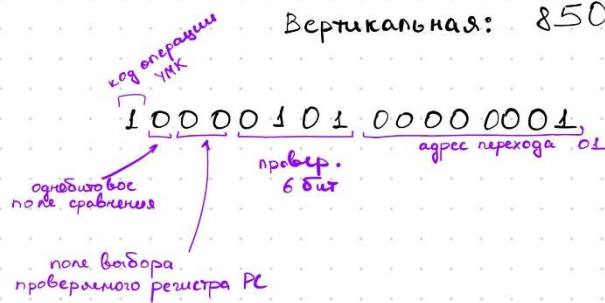 Вертикальная: 850
код операции
УМК
1 0 0 0 0 1 0 1 0000 0001
адрес перехода 01
провер.
6 бит
однобитовое
поле сравнения
поле выбора
проверяемого регистра РС